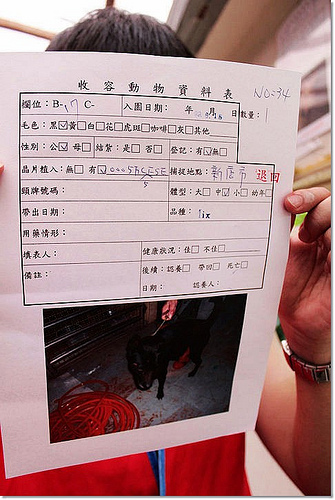 收容動物資料表 NO=34
欄位：B-17 C- 入園日期： 年 月 日 數量：1
毛色：黑☑黃□白□花□虎斑□咖啡□灰□其他
性別：公☑母□ 結紮：是□否□ 登記：有□無□
晶片植入：無□ 有☑ 捕捉地點：新店市 退回
頸牌號碼： 體型：大□中☑小□幼年□
帶出日期： 品種：Mix
用藥情形：
填表人： 健康狀況：佳□ 不佳□
備註： 後續：認養□ 帶回□ 死亡□
日期： 認養人：